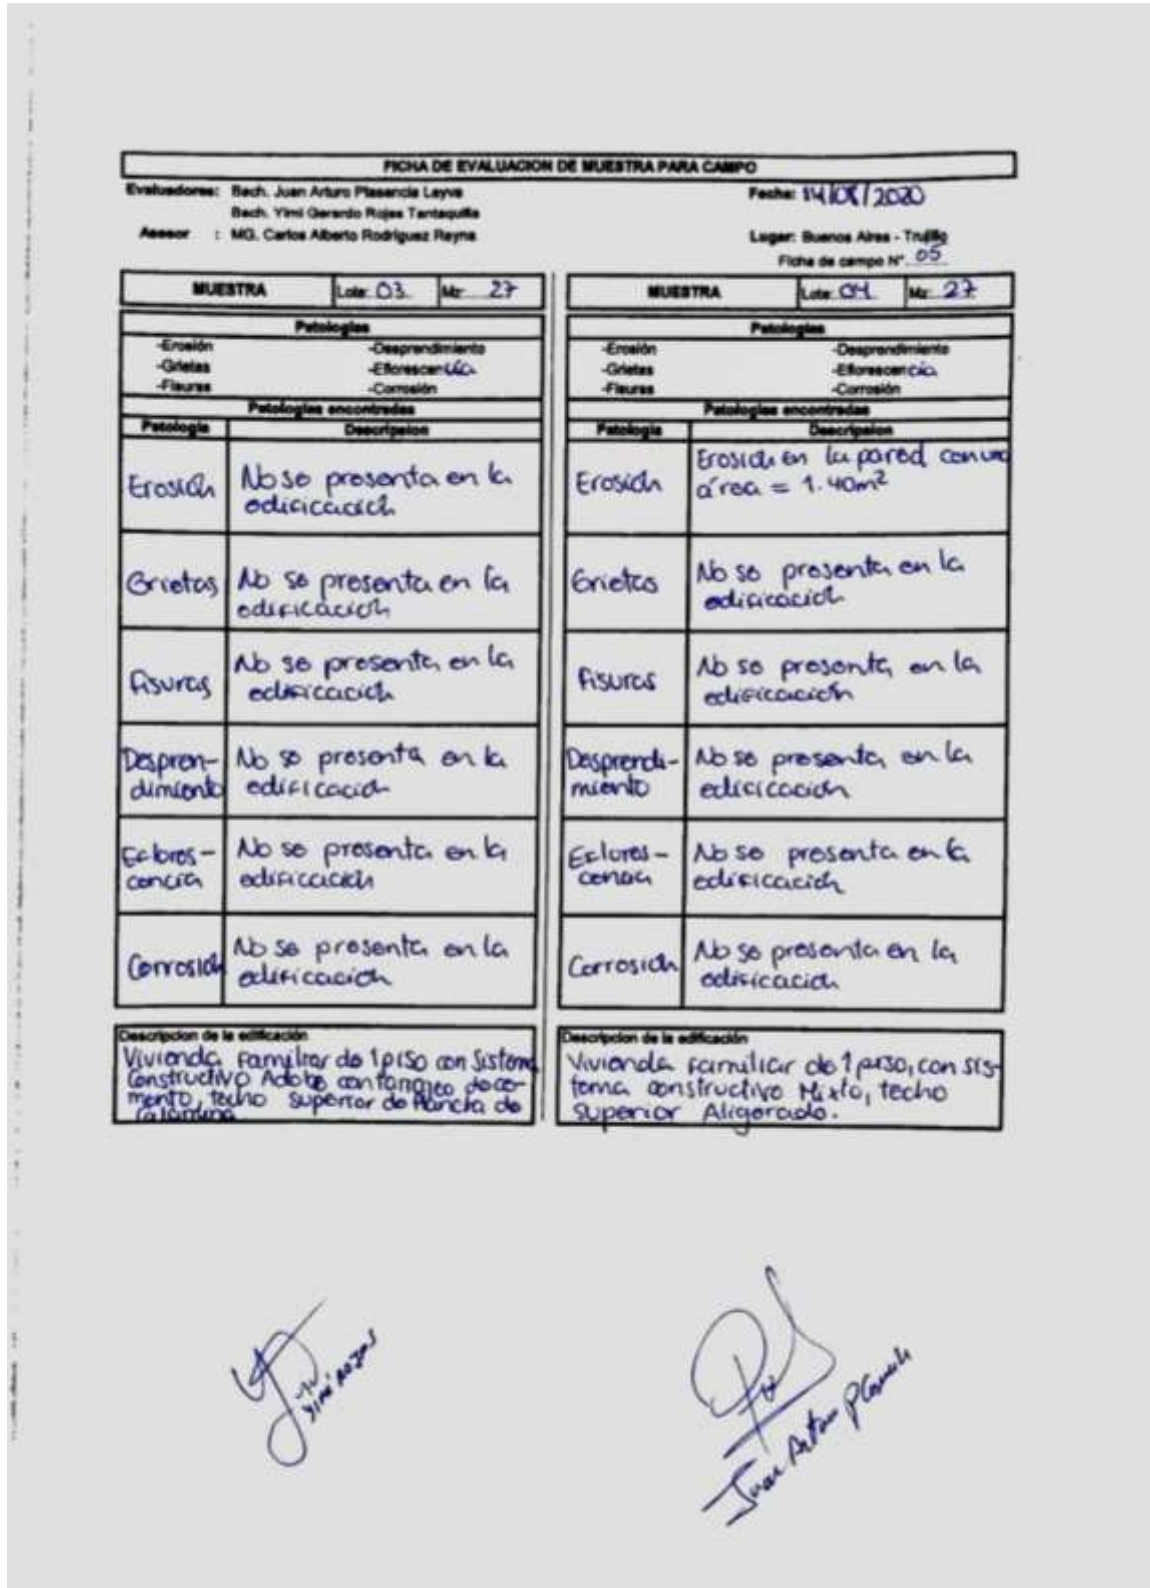 FICHA DE EVALUACION DE MUESTRA PARA CAMPO
Evaluadores: Bach. Juan Arturo Plasencia Leyva
Fecha: 14/08/2020
Bach. Yimi Gerardo Rojas Tantaquilla
Asesor : MG. Carlos Alberto Rodríguez Reyna
Lugar: Buenos Aires - Trujillo
Ficha de campo N° 05
MUESTRA Lote: 03 Mz: 27
Patologías
-Erosión -Desprendimiento
-Grietas -Eflorescencia
-Fisuras -Corrosión
Patologías encontradas
Patología Descripsion
Erosión No se presenta en la
edificación
Grietas No se presenta en la
edificación
Fisuras No se presenta en la
edificación
Despren- No se presenta en la
dimiento edificación
Eflores- No se presenta en la
cencia edificación
Corrosión No se presenta en la
edificación
Descripcion de la edificación
Vivienda familiar de 1 piso con Sistema
Constructivo Adobe con tarrajeo de ce-
mento, techo superior de Plancha de
Calamina.
MUESTRA Lote: 04 Mz: 27
Patologías
-Erosión -Desprendimiento
-Grietas -Eflorescencia
-Fisuras -Corrosión
Patologías encontradas
Patología Descripsion
Erosión Erosión en la pared con un
área = 1.40m²
Grietas No se presenta en la
edificación
Fisuras No se presenta en la
edificación
Desprendi- No se presenta en la
miento edificación
Eflores- No se presenta en la
cencia edificación
Corrosión No se presenta en la
edificación
Descripcion de la edificación
Vivienda familiar de 1 piso, con sis-
tema constructivo Mixto, techo
superior Aligerado.
Yimi Rojas
Juan Arturo Plasencia